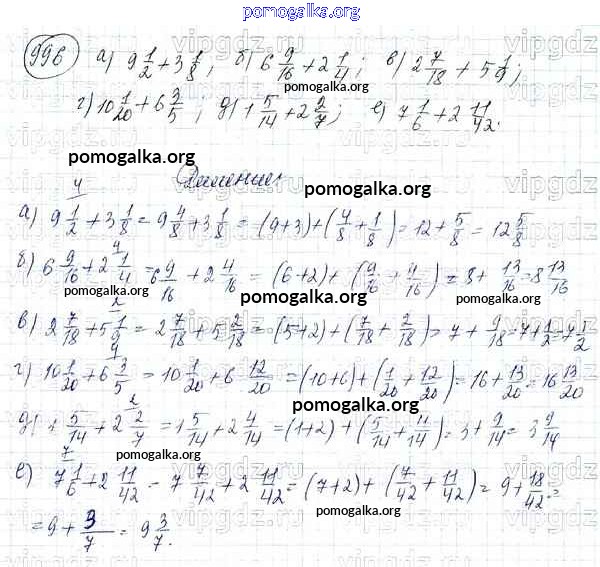 pomogalka.org
996 а) 9 1/2 + 3 1/8; б) 6 9/16 + 2 1/4; в) 2 7/18 + 5 1/9;
г) 10 1/20 + 6 3/5; д) 1 5/14 + 2 2/7; е) 7 1/6 + 2 11/42.
pomogalka.org
pomogalka.org
а) 9 1/2 + 3 1/8 = 9 4/8 + 3 1/8 = (9+3)+(4/8+1/8) = 12 + 5/8 = 12 5/8
б) 6 9/16 + 2 1/4 = 6 9/16 + 2 4/16 = (6+2)+(9/16+4/16) = 8 + 13/16 = 8 13/16
pomogalka.org
pomogalka.org
в) 2 7/18 + 5 1/9 = 2 7/18 + 5 2/18 = (5+2)+(7/18+2/18) = 7 + 9/18 = 7 + 1/2 = 7 1/2
г) 10 1/20 + 6 3/5 = 10 1/20 + 6 12/20 = (10+6)+(1/20+12/20) = 16 + 13/20 = 16 13/20
pomogalka.org
д) 1 5/14 + 2 2/7 = 1 5/14 + 2 4/14 = (1+2)+(5/14+4/14) = 3 + 9/14 = 3 9/14
pomogalka.org
е) 7 1/6 + 2 11/42 = 7 7/42 + 2 11/42 = (7+2)+(7/42+11/42) = 9 + 18/42 =
pomogalka.org
= 9 + 3/7 = 9 3/7.
pomogalka.org